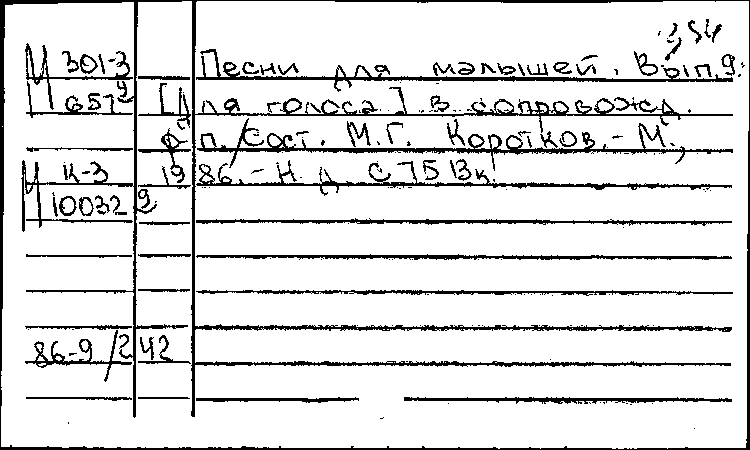 354
М 301-3 Песни для малышей. Вып. 9:
6579 [Для голоса] в сопровожд.
ф-п./Сост. М.Г. Коротков.- М.,
М К-3 1986.- Н.д. с 75 13к.
10032 9
86-9/242